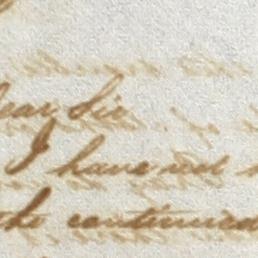 Dear Sir
I have not
the continued